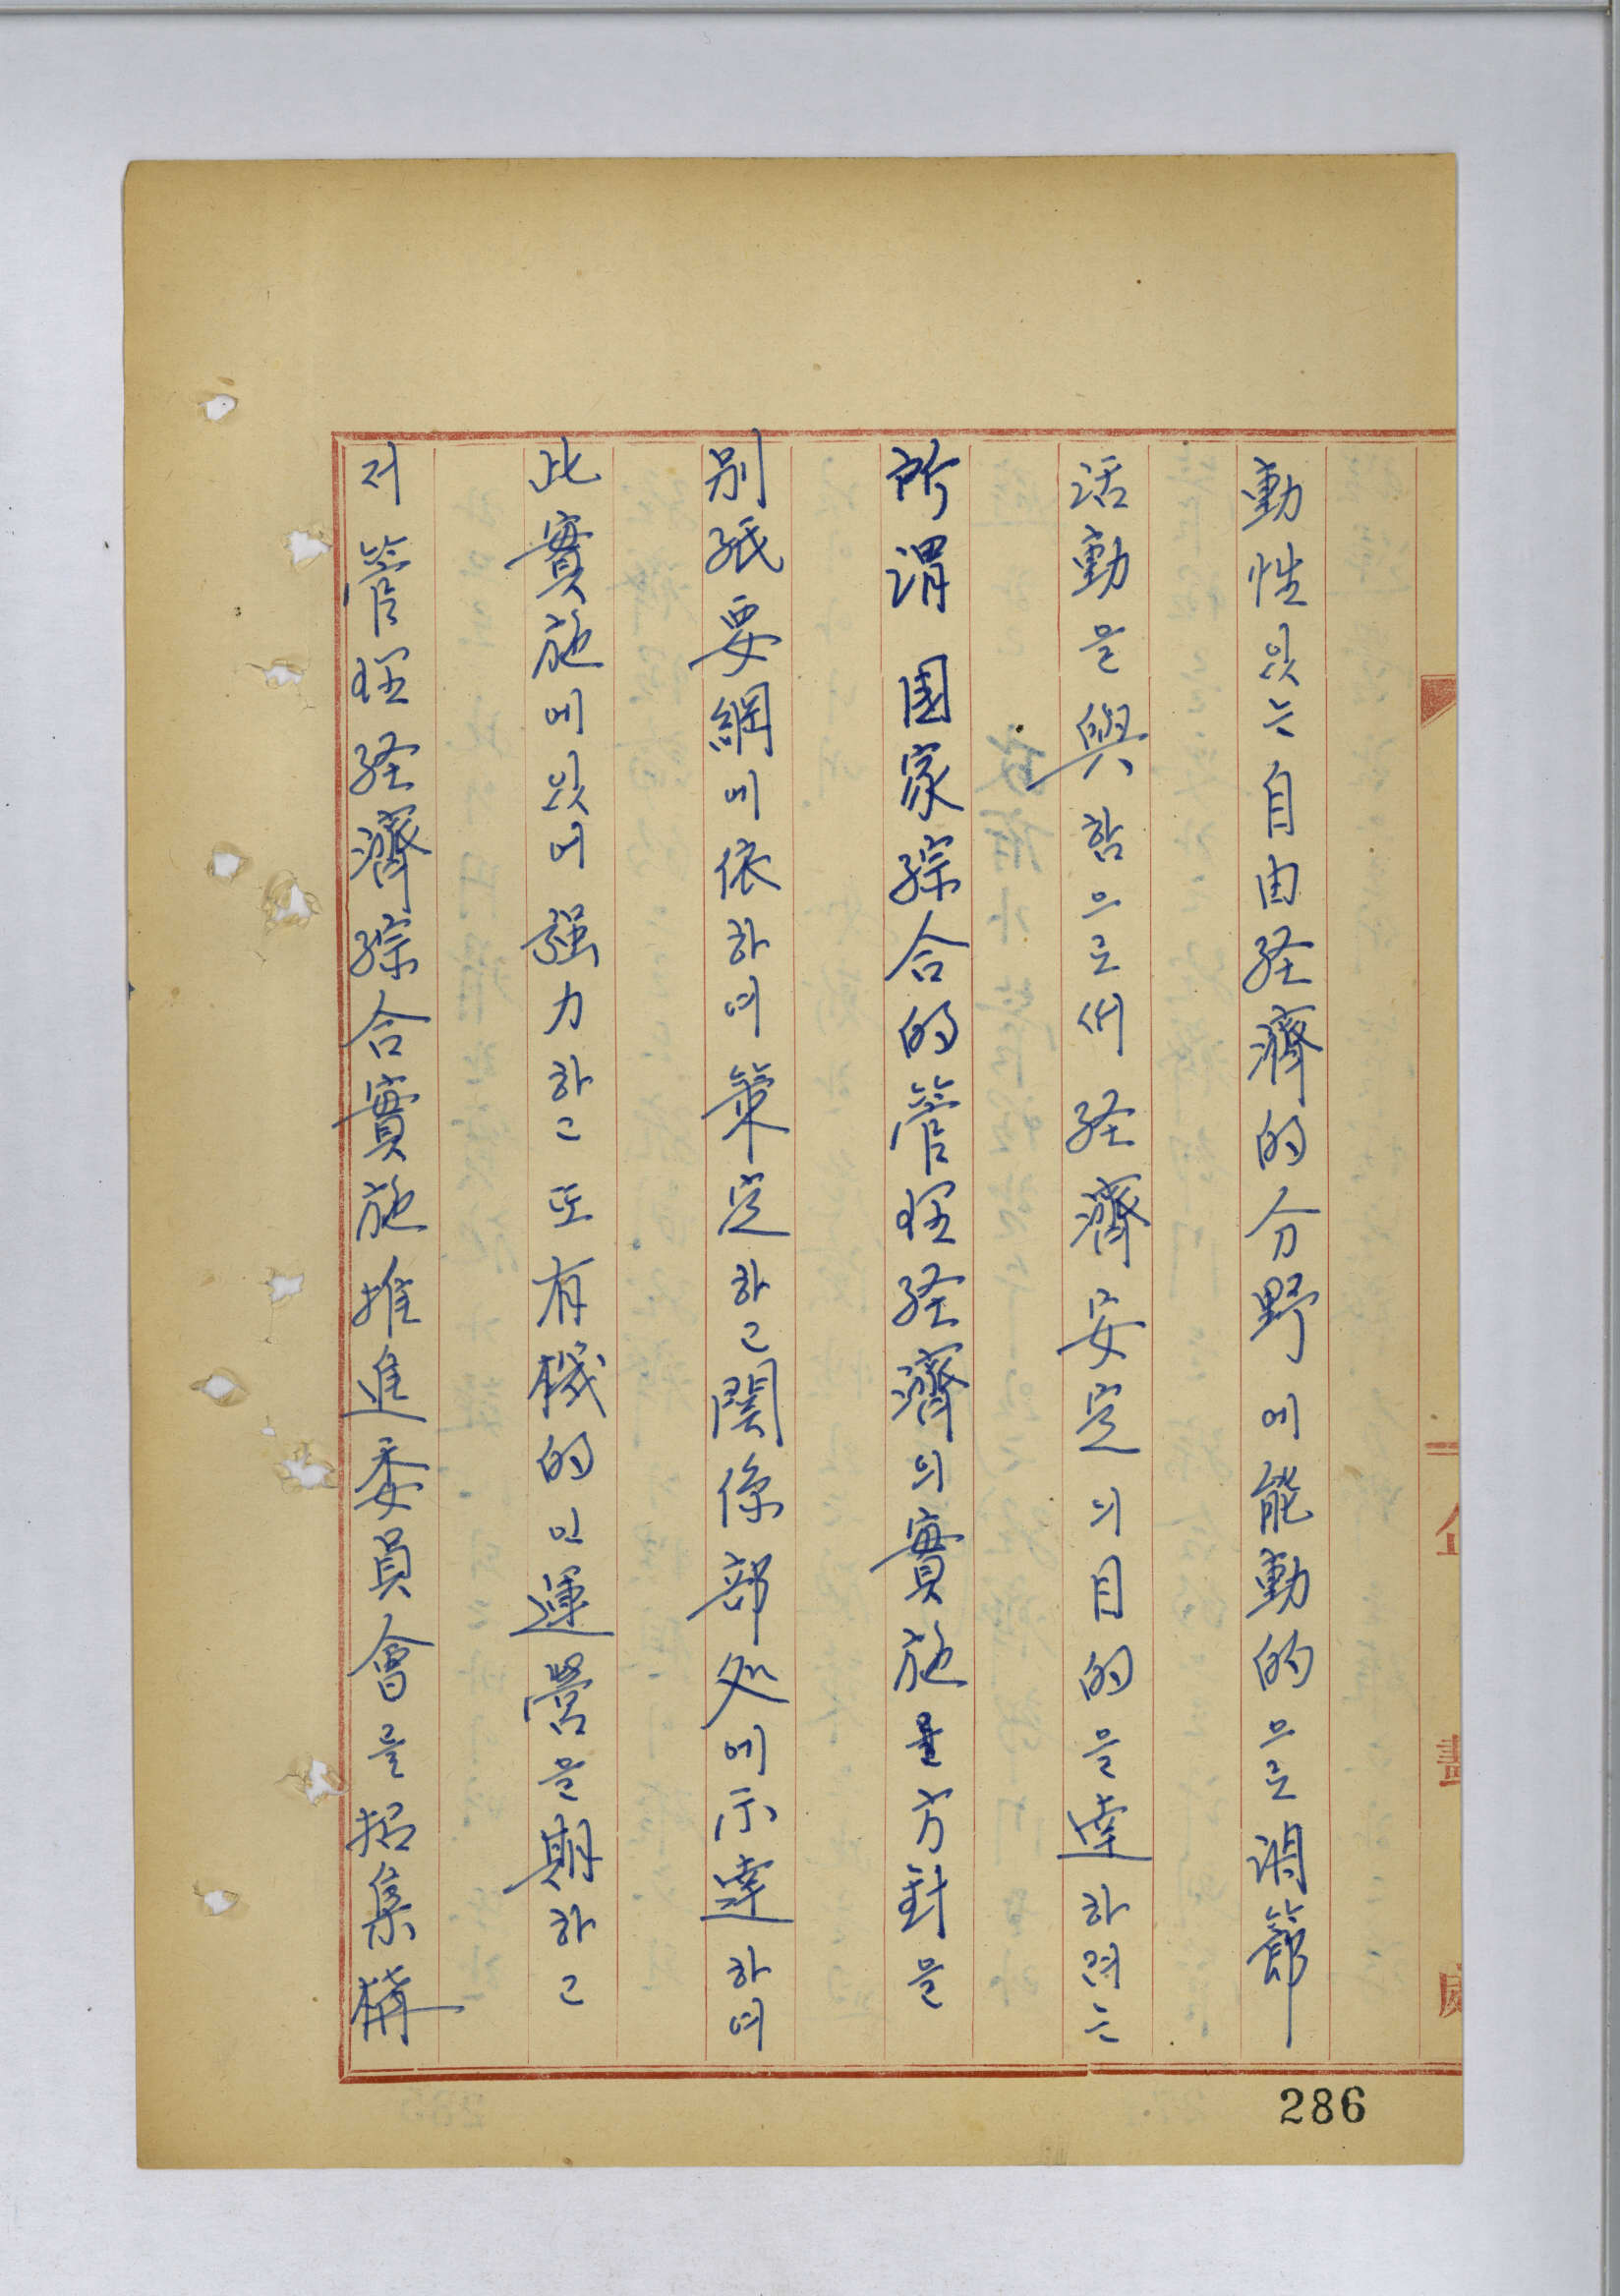 動性있는自由経濟的分野에能動的으로調節
活動을與함으로써 経濟安定의目的을達하려는
所謂 國家綜合的管理経濟의實施方途을
別紙要綱에依하여策定하고関係部処에示達하여
此實施에있어强力하고 또有機的인運營을期하고
저管理経濟綜合實施推進委員會를招集構
企畫處
286